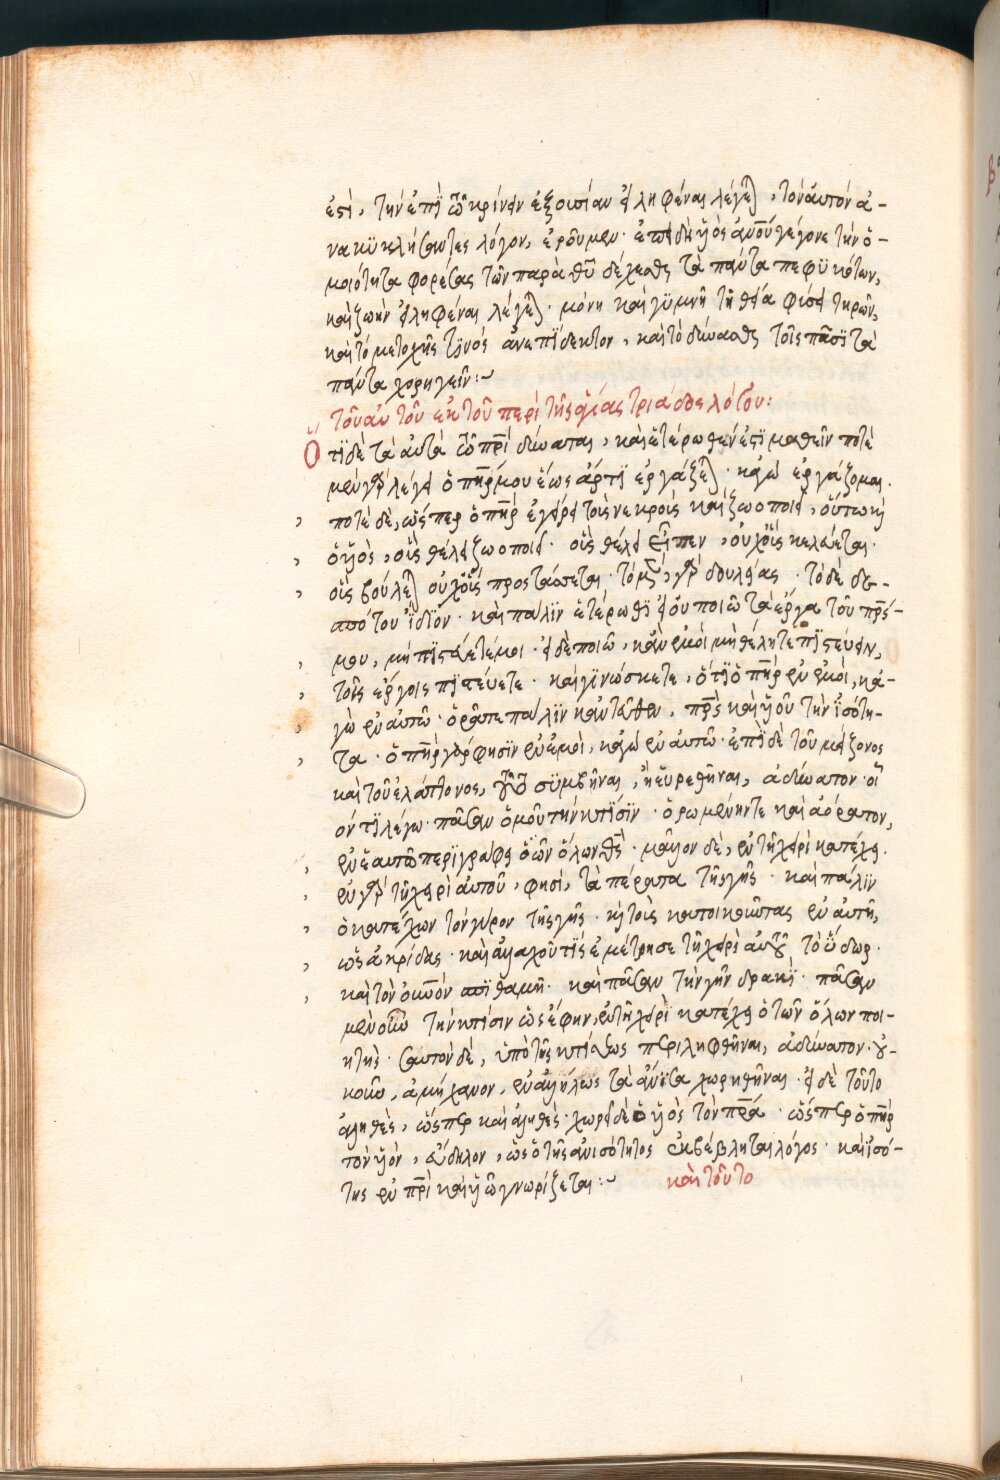 ἐστὶ, τὴν ἐπὶ τῶ κρίνειν ἐξουσίαν εἰληφέναι λέγεται, τὸν αὐτὸν ἀ-
νακυκλήσαντες λόγον, ἐροῦμεν· ἐπειδὴ ὁ υἱὸς ἀν(θρώπ)ου γέγονε τὴν ὁ-
μοιότητα φορέσας τῶν παρὰ θῦ δέχεσθαι τὰ πάντα πεφυκότων,
καὶ ζωὴν εἰληφέναι λέγεται· μόνη καὶ γυμνῆ τῆ θεία φύσει τηρῶν,
καὶ τὸ μετοχῆς τινός ἀνεπίδεκτον, καὶ τὸ δύνασθαι τοῖς πᾶσι τὰ
πάντα χορηγεῖν:~
τοῦ αὐτοῦ ἐκ τοῦ περὶ τῆς ἁγίας τριάδος λόγου:
Ὅτι δὲ τὰ αὐτὰ τῶ πρὶ δύναται, καὶ ἑτέρωθεν ἔστι μαθεῖν ποτὲ
μὲν γὰρ λέγει ὁ πῆρ μου ἕως ἄρτι ἐργάζεται· κἀγὼ ἐργάζομαι.
ποτὲ δὲ, ὥσπερ ὁ πῆρ ἐγείρει τοὺς νεκροὺς καὶ ζωοποιεῖ, οὕτω καὶ
ὁ υἱὸς, οὓς θέλει ζωοποιεῖ· οὓς θέλει εἶπεν, οὐχ οὓς κελεύεται·
οὓς βούλεται οὐχ οὓς προστάσσεται· τὸ μὲν, γὰρ δουλείας· τὸ δὲ δε-
σπότου ἴδιον· καὶ πάλιν ἑτέρωθι εἰ οὐ ποιῶ τὰ ἔργα τοῦ πρς-
μου, μὴ πιστεύετέ μοι· εἰ δὲ ποιῶ, κἂν ἐμοὶ μὴ θέλητε πιστεύειν,
τοῖς ἔργοις πιστεύετε· καὶ γινώσκετε, ὅτι ὁ πῆρ ἐν ἐμοὶ, κἀ-
γὼ ἐν αὐτῶ· ὁρᾶτε πάλιν κἀνταῦθα, πρς καὶ υἱοῦ τὴν ἰσότη-
τα· ὁ πῆρ γάρ φησιν ἐν ἐμοὶ, κἀγὼ ἐν αὐτῶ· ἐπὶ δὲ τοῦ μείζονος
καὶ τοῦ ἐλάττονος, τοῦτο συμβῆναι, ἢ εὑρεθῆναι, ἀδύνατον· οἷ
όν τι λέγω· πᾶσαν ὁμοῦ τὴν κτίσιν· ὁρωμένην τε καὶ ἀόρατον,
ἐν ἑαυτῶ περιγράφει ὁ τῶν ὅλων θς· μᾶλλον δὲ, ἐν τῆ χειρὶ κατέχει.
ἐν γὰρ τῆ χειρὶ αὐτοῦ, φησὶ, τὰ πέρατα τῆς γῆς· καὶ πάλιν
ὁ κατέχων τὸν γῦρον τῆς γῆς· καὶ τοὺς κατοικοῦντας ἐν αὐτῆ,
ὡς ἀκρίδας· καὶ ἀλλαχοῦ τίς ἐμέτρησε τῆ χειρὶ αὐτοῦ τὸ ὕδωρ·
καὶ τὸν οὐνὸν σπιθαμῆ· καὶ πᾶσαν τὴν γῆν δρακὶ· πᾶσαν
μὲν οὖν τὴν κτίσιν ὡς ἔφην, ἐν τῆ χειρὶ κατέχει ὁ τῶν ὅλων ποι-
ητὴς· αὐτὸν δὲ, ὑπὸ τῆς κτίσεως περιληφθῆναι, ἀδύνατον· οὐ-
κοῦν, ἀμήχανον, ἐν ἀλλήλοις τὰ ἄνισα χωρηθῆναι· εἰ δὲ τοῦτο
ἀληθὲς, ὥσπερ καὶ ἀληθὲς· χωρεῖ δὲ ὁ υἱὸς τὸν πρα· ὥσπερ ὁ πῆρ
τὸν υἱὸν, εὔδηλον, ὡς ὁ τῆς ἀνισότητος ἐκβέβληται λόγος· καὶ ἰσό-
της ἐν πρὶ καὶ υἱῶ γνωρίζεται:~ καὶ τοῦτο